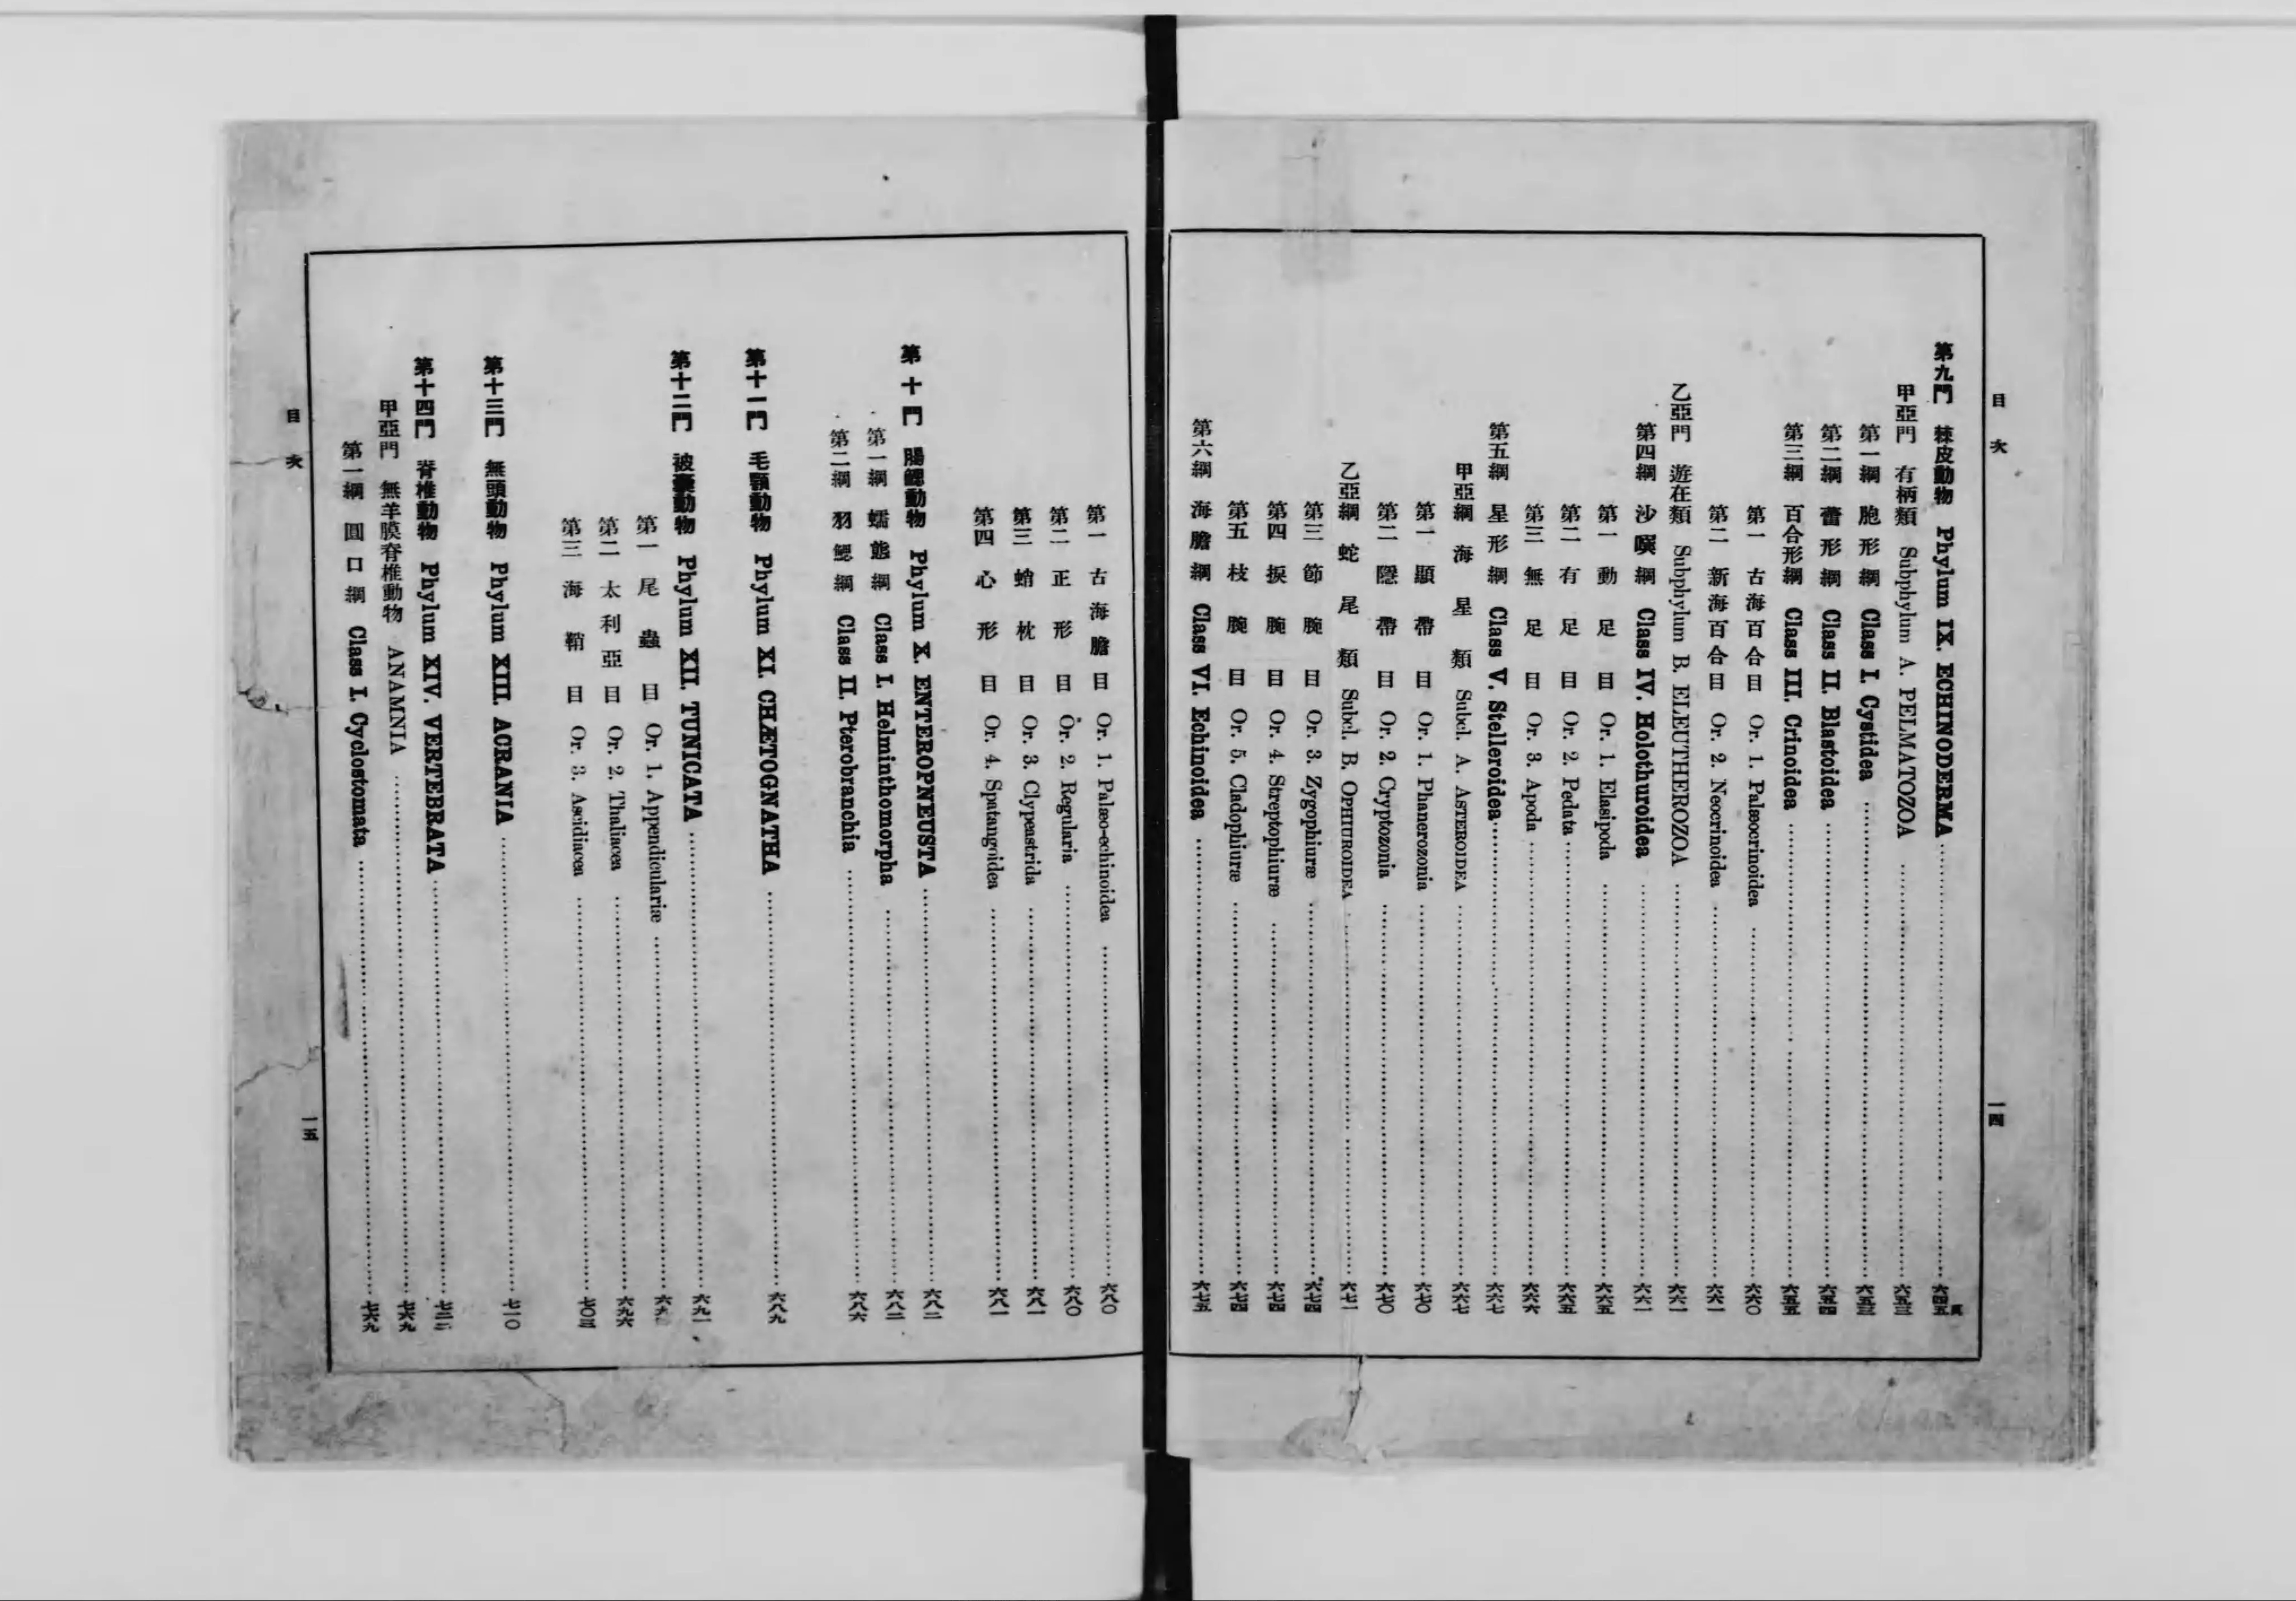 目次
一四
頁
第九門 棘皮動物 Phylum IX. ECHINODERMA 六四五
甲亞門 有柄類 Subphylum A. PELMATOZOA 六五三
第一綱 胞形綱 Class I. Cystidea 六五三
第二綱 蕾形綱 Class II. Blastoidea 六五四
第三綱 百合形綱 Class III. Crinoidea 六五五
第一 古海百合目 Or. 1. Palæocrinoidea 六六〇
第二 新海百合目 Or. 2. Neocrinoidea 六六一
乙亞門 遊在類 Subphylum B. ELEUTHEROZOA 六六一
第四綱 沙噀綱 Class IV. Holothuroidea 六六一
第一 動足目 Or. 1. Elasipoda 六六五
第二 有足目 Or. 2. Pedata 六六五
第三 無足目 Or. 3. Apoda 六六六
第五綱 星形綱 Class V. Stelleroidea 六六七
甲亞綱 海星類 Subcl. A. ASTEROIDEA 六六七
第一 顯帶目 Or. 1. Phanerozonia 六七〇
第二 隱帶目 Or. 2. Cryptozonia 六七〇
乙亞綱 蛇尾類 Subcl. B. OPHIUROIDEA 六七一
第三 節腕目 Or. 3. Zygophiuræ 六七四
第四 捩腕目 Or. 4. Streptophiuræ 六七四
第五 枝腕目 Or. 5. Cladophiuræ 六七四
第六綱 海膽綱 Class VI. Echinoidea 六七五
第一 古海膽目 Or. 1. Palæo-echinoidea 六八〇
第二 正形目 Or. 2. Regularia 六八〇
第三 蛸枕目 Or. 3. Clypeastrida 六八一
第四 心形目 Or. 4. Spatangoidea 六八一
第十門 腸鰓動物 Phylum X. ENTEROPNEUSTA 六八二
第一綱 蠕態綱 Class I. Helminthomorpha 六八二
第二綱 羽鰓綱 Class II. Pterobranchia 六八六
第十一門 毛顎動物 Phylum XI. CHÆTOGNATHA 六八九
第十二門 被囊動物 Phylum XII. TUNICATA 六九一
第一 尾蟲目 Or. 1. Appendiculariæ
第二 太利亞目 Or. 2. Thaliacea 六九六
第三 海鞘目 Or. 3. Ascidiacea 七〇三
第十三門 無頭動物 Phylum XIII. ACRANIA 七一〇
第十四門 脊椎動物 Phylum XIV. VERTEBRATA
甲亞門 無羊膜脊椎動物 ANAMNIA 七六九
第一綱 圓口綱 Class I. Cyclostomata 七六九
目次
一五